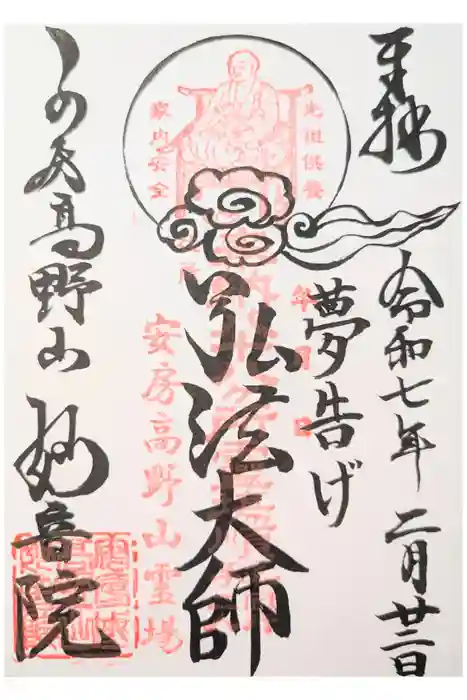 奉拝
令和七年 二月廿三日
先祖供養
家内安全
夢告げ
弘法大師
安房高野山霊場
高野山 妙音院